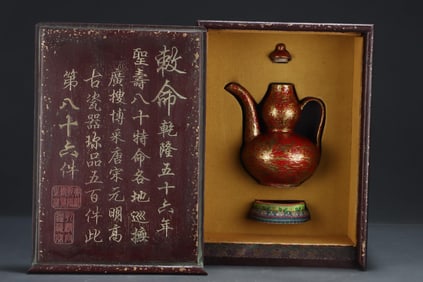 敕命
乾隆五十六年
聖壽八十特命各地巡撫
廣搜博采唐宋元明高
古瓷器珍品五百件此
第八十六件